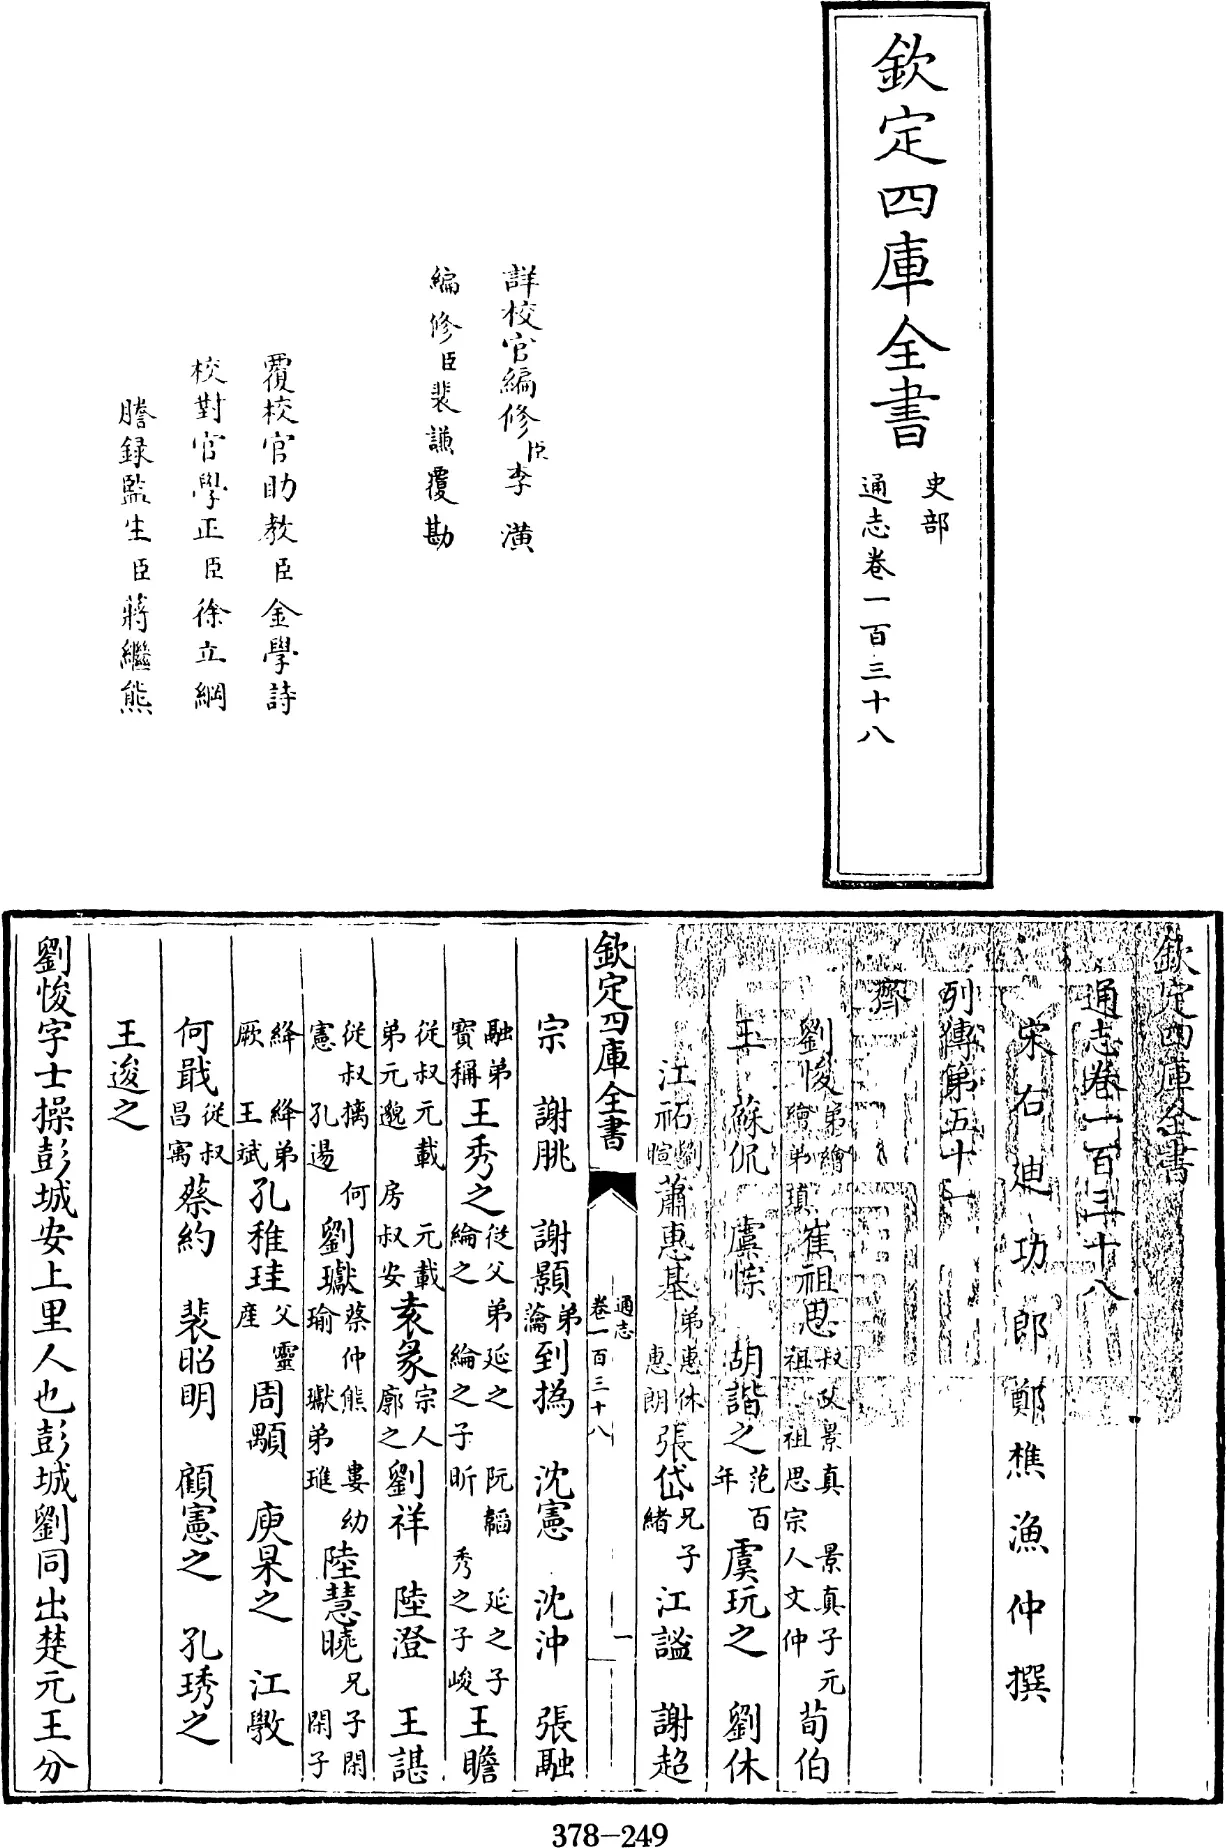 欽定四庫全書
史部
通志卷一百三十八
詳校官編修臣李潢
編修臣裴謙覆勘
覆校官助教臣金學詩
校對官學正臣徐立綱
謄録監生臣蔣繼熊
欽定四庫全書
通志卷一百三十八
宋右迪功郎鄭樵漁仲撰
列傳第五十一
齊
劉悛弟繪 繪弟瑱 崔祖思叔父景真 景真子元祖 祖思宗人文仲 荀伯
玉 蘇侃 虞悰 胡諧之范百年 虞玩之 劉休
江祏劉暄 蕭惠基弟惠休 惠朗 張岱兄子緒 江謐 謝超
欽定四庫全書 通志卷一百三十八 一
宗 謝朓 謝顥弟瀹 到撝 沈憲 沈沖 張融
融弟寳稱 王秀之從父弟延之 阮韜 延之子綸之 綸之子昕 秀之子峻 王瞻
從叔元載 元載弟元邈 房叔安 袁彖宗人廓之 劉祥 陸澄 王諶
從叔摛 何憲 孔逷 劉瓛蔡仲熊 婁幼瑜 瓛弟璡 陸慧曉兄子閑 閑子
絳 絳弟厥 王斌 孔稚珪父靈産 周顒 庾杲之 江斆
何戢從叔昌㝢 蔡約 裴昭明 顧憲之 孔琇之
王逡之
劉悛字士操彭城安上里人也彭城劉同出楚元王分
378-249